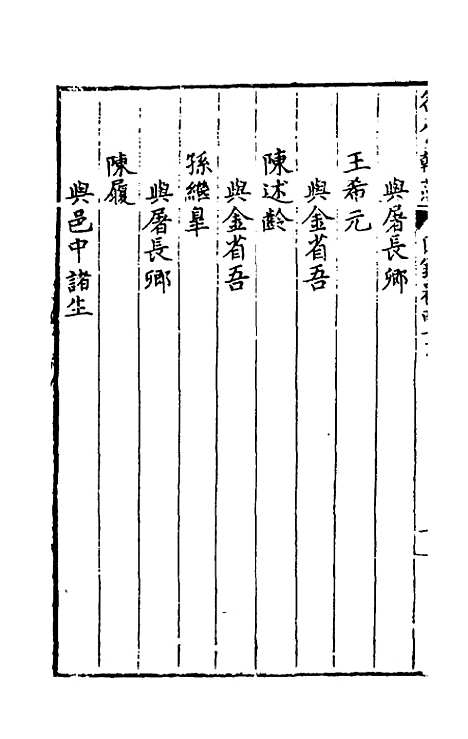 與屠長卿
王希元
與金省吾
陳述齡
與金省吾
孫繼臯
與屠長卿
陳履
與邑中諸生